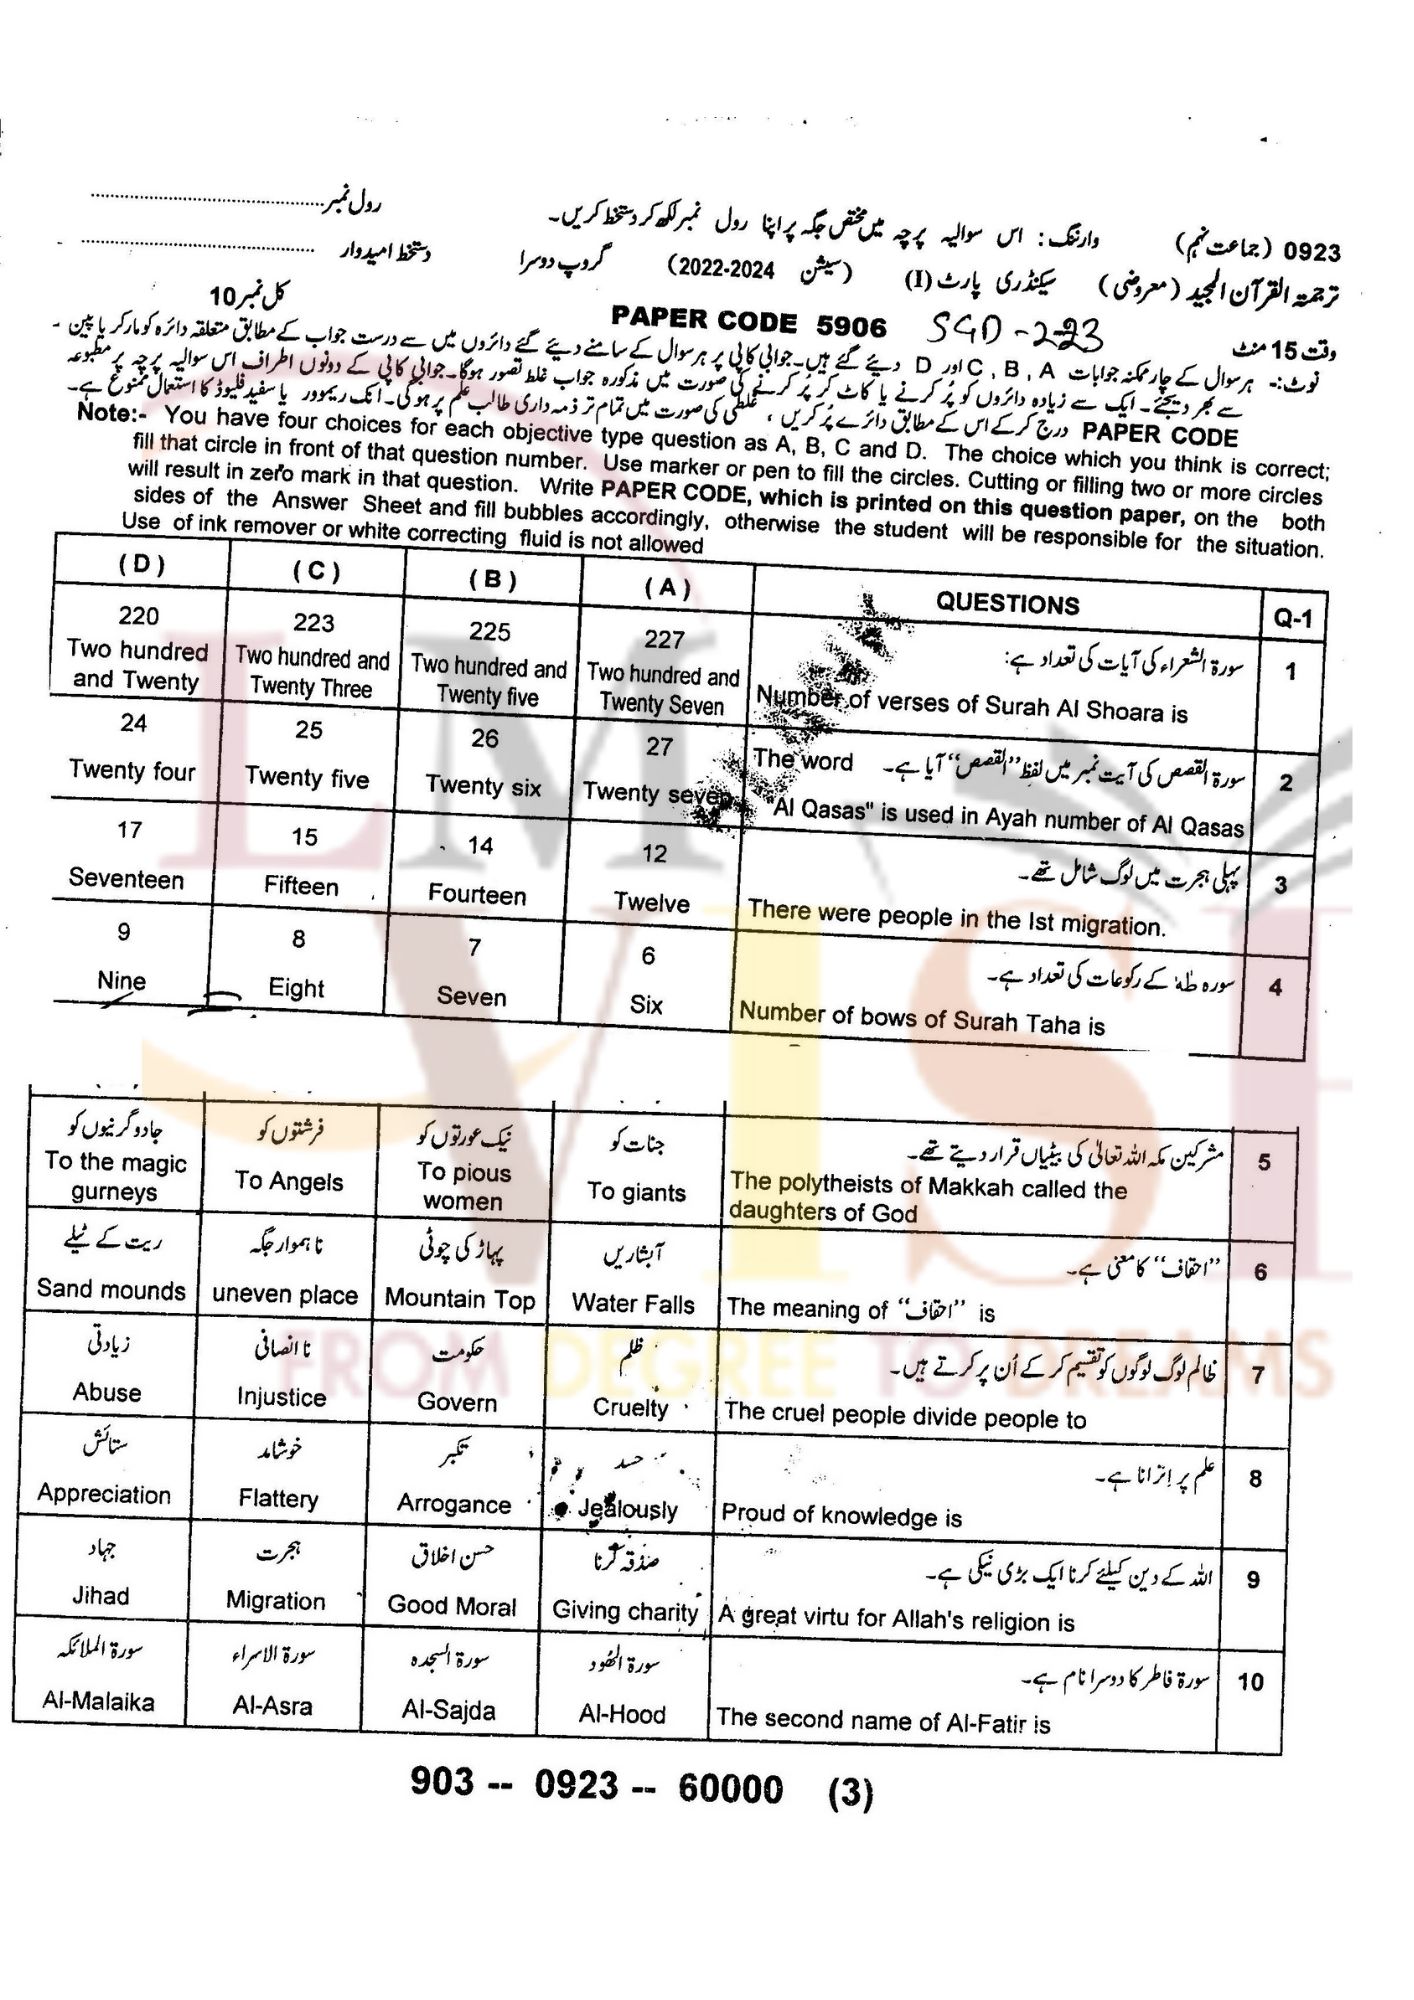 رول نمبر........................................
وارننگ: اس سوالیہ پرچہ میں مختص جگہ پر اپنا رول نمبر لکھ کر دستخط کریں۔
0923 (جماعت نہم)
دستخط امیدوار ........................................
ترجمۃ القرآن المجید (معروضی) سیکنڈری پارٹ (I) (سیشن 2022-2024) گروپ دوسرا
کل نمبر 10
PAPER CODE 5906
وقت 15 منٹ
نوٹ:- ہر سوال کے چار ممکنہ جوابات A , B , C اور D دیئے گئے ہیں۔ جوابی کاپی پر ہر سوال کے سامنے دیئے گئے دائروں میں سے درست جواب کے مطابق متعلقہ دائرہ کو مارکر یا پین -
سے بھر دیجئے۔ ایک سے زیادہ دائروں کو پُر کرنے یا کاٹ کر پُر کرنے کی صورت میں مذکورہ جواب غلط تصور ہوگا۔ جوابی کاپی کے دونوں اطراف اس سوالیہ پرچہ پر مطبوعہ
PAPER CODE درج کرکے اس کے مطابق دائرے پُر کریں، غلطی کی صورت میں تمام تر ذمہ داری طالب علم پر ہوگی۔ انک ریموور یا سفید فلیوڈ کا استعمال ممنوع ہے۔
Note:- You have four choices for each objective type question as A, B, C and D. The choice which you think is correct;
fill that circle in front of that question number. Use marker or pen to fill the circles. Cutting or filling two or more circles
will result in zero mark in that question. Write PAPER CODE, which is printed on this question paper, on the both
sides of the Answer Sheet and fill bubbles accordingly, otherwise the student will be responsible for the situation.
Use of ink remover or white correcting fluid is not allowed
(D) (C) (B) (A) QUESTIONS Q-1
220 223 225 227 سورۃ الشعراء کی آیات کی تعداد ہے: 1
Two hundred and Twenty
Two hundred and Twenty Three
Two hundred and Twenty five
Two hundred and Twenty Seven
Number of verses of Surah Al Shoara is
24 25 26 27 The word سورۃ القصص کی آیت نمبر میں لفظ "القصص" آیا ہے۔ 2
Twenty four Twenty five Twenty six Twenty seven "Al Qasas" is used in Ayah number of Al Qasas
17 15 14 12 پہلی ہجرت میں لوگ شامل تھے۔ 3
Seventeen Fifteen Fourteen Twelve There were people in the Ist migration.
9 8 7 6 سورہ طٰہٰ کے رکوعات کی تعداد ہے۔ 4
Nine Eight Seven Six Number of bows of Surah Taha is
جادوگرنیوں کو فرشتوں کو نیک عورتوں کو جنات کو مشرکین مکہ اللہ تعالیٰ کی بیٹیاں قرار دیتے تھے۔ 5
To the magic gurneys
To Angels
To pious women
To giants
The polytheists of Makkah called the
daughters of God
ریت کے ٹیلے ناہموار جگہ پہاڑ کی چوٹی آبشاریں "احقاف" کا معنی ہے۔ 6
Sand mounds uneven place Mountain Top Water Falls The meaning of "احقاف" is
زیادتی ناانصافی حکومت ظلم ظالم لوگ لوگوں کو تقسیم کر کے اُن پر کرتے ہیں۔ 7
Abuse Injustice Govern Cruelty The cruel people divide people to
ستائش خوشامد تکبر حسد علم پر اِترانا ہے۔ 8
Appreciation Flattery Arrogance Jealously Proud of knowledge is
جہاد ہجرت حسن اخلاق صدقہ کرنا اللہ کے دین کیلئے کرنا ایک بڑی نیکی ہے۔ 9
Jihad Migration Good Moral Giving charity A great virtu for Allah's religion is
سورۃ الملائکہ سورۃ الاسراء سورۃ السجدہ سورۃ الھُود سورۃ فاطر کا دوسرا نام ہے۔ 10
Al-Malaika Al-Asra Al-Sajda Al-Hood The second name of Al-Fatir is
903 -- 0923 -- 60000 (3)
FROM DEGREE TO DREAMS